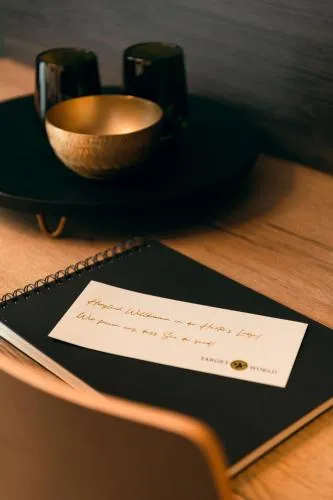 Herzlich Willkommen in der
Wir freuen uns, dass Sie da sind!
TARGET WORLD